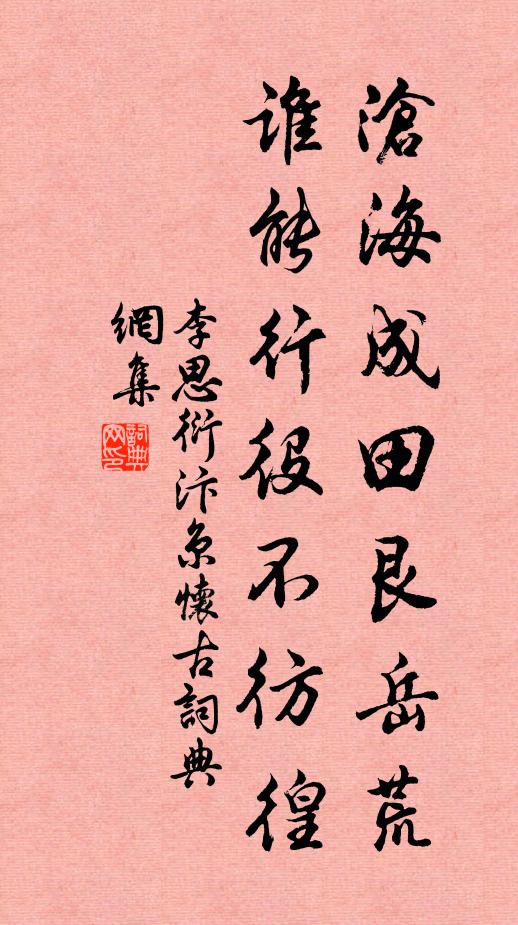 滄海成田艮岳荒
誰能行役不彷徨
李思衍汴京懷古詞典
網集
詞典
网印